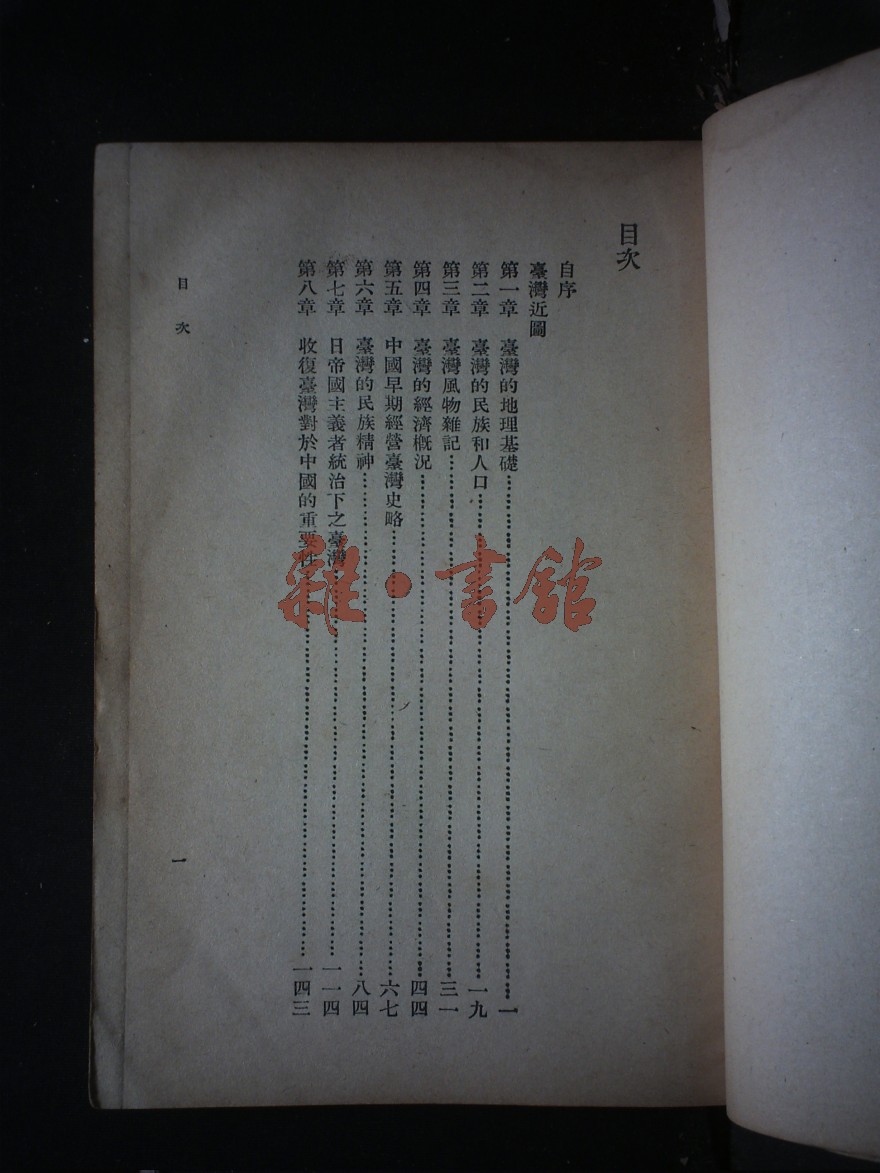 目次
自序
臺灣近圖
第一章 臺灣的地理基礎……一
第二章 臺灣的民族和人口……一九
第三章 臺灣風物雜記……三一
第四章 臺灣的經濟概況……四四
第五章 中國早期經營臺灣史略……六七
第六章 臺灣的民族精神……八四
第七章 日帝國主義者統治下之臺灣……一一四
第八章 收復臺灣對於中國的重要性……一四三
目次
一
雜·書館